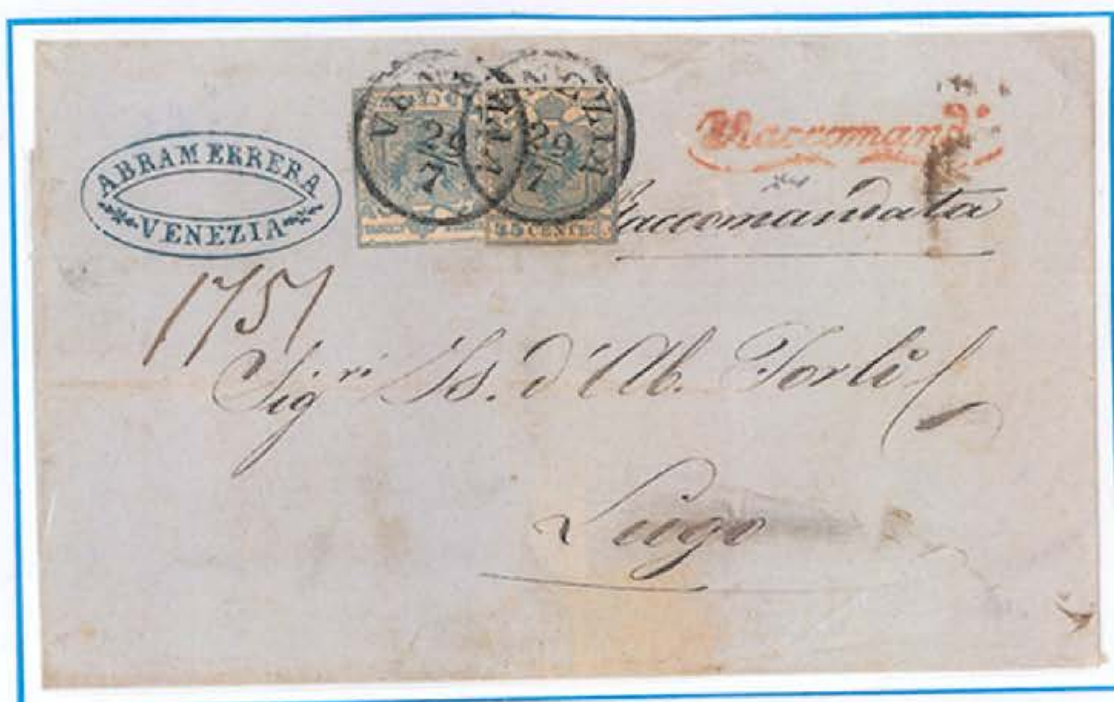 ABRAM ERRERA
VENEZIA
VENEZIA
7
VENEZIA
29
7
45 CENTES
Raccomand.ª
Raccomandata
1751
Sig.ri Is. d'Ab. Forlì
Lugo